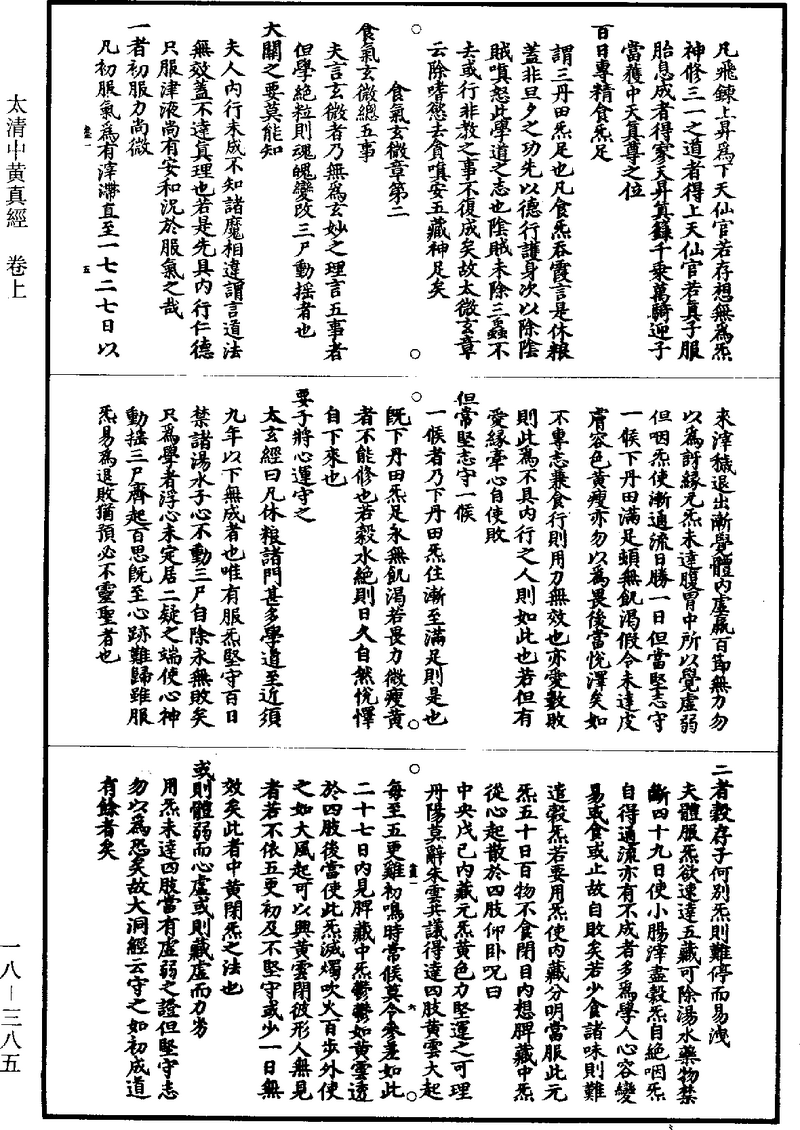 太清中黃真經　卷上
一八—三八五
凡飛鍊上昇為下天仙官若存想無為炁
神修三一之道者得上天仙官若真子服
胎息成者得家天昇真籙千乘萬騎迎子
當獲中天真尊之位
百日專精食炁足
謂三丹田炁足也凡食炁吞霞言是休粮
蓋非旦夕之功先以德行護身次以除陰
賊嗔怒此學道之志也陰賊未除三蟲不
去或行非教之事不復成矣故太微玄章
云除嗜慾去貪嗔安五藏神足矣
食氣玄微章第二
食氣玄微總五事
夫言玄微者乃無為玄妙之理言五事者
但學絕粒則魂魄變改三尸動搖者也
大關之要莫能知
夫人內行未成不知諸魔相違謂言道法
無效蓋不達真理也若是先具內行仁德
只服津液尚有安和況於服氣之哉
一者初服力尚微
凡初服氣為有滓滯直至一七二七日以
來滓穢退出漸覺體內虛羸百節無力勿
以為訝緣元炁未達腹胃中所以覺虛弱
但咽炁使漸通流日勝一日但當堅志守
一候下丹田滿足頓無飢渴假令未達皮
膚容色黃瘦亦勿以為畏後當悅澤矣如
不專志兼食行則用力無效也亦愛數敗
則此為不具內行之人則如此也若但有
愛緣牽心自使敗
但常堅志守一候
一候者乃下丹田炁住漸至滿足則是也
既下丹田炁足永無飢渴若畏力微瘦黃
者不能修也若穀水絕則日久自然悅懌
自下來也
要子將心運守之
太玄經曰凡休粮諸門甚多學道至近須
九年以下無成者也唯有服炁堅守百日
禁諸湯水子心不動三尸自除永無敗矣
只為學者浮心未定居二疑之端使心神
動搖三尸齊起百思既至心跡難歸雖服
炁易為退敗猶預必不靈聖者也
二者穀存子何別炁則難停而易洩
夫體服炁欲速達五藏可除湯水藥物禁
斷四十九日使小腸滓盡穀炁自絕咽炁
自得通流亦有不成者多為學人心容變
易或食或止故自敗矣若少食諸味則難
遣穀炁若要用炁使內藏分明當服此元
炁五十日百物不食閉目內想脾藏中炁
從心起散於四肢仰臥呪曰
中央戊己內藏元炁黃色力堅運之可理
丹陽莫辭朱雲共議得達四肢黃雲大起
每至五更雞初鳴時常候莫令參差如此
二十七日內見脾藏中炁鬱鬱如黃雲透
於四肢後當使此炁滅燭吹火百步外使
之如大風起可以興黃雲閉彼形人無見
者若不依五更初及不堅守或少一日無
效矣此者中黃閉炁之法也
或則體弱而心虛或則藏虛而力劣
用炁未達四肢當有虛弱之證但堅守志
勿以為恐矣故大洞經云守之如初成道
有餘者矣